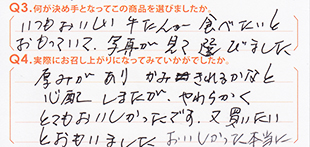 Q3.何が決め手となってこの商品を選びましたか。
いつもおいしい牛たんが食べたいと
おもっていて、写真が見て選びました
Q4.実際にお召し上がりになってみていかがでしたか。
厚みがあり かみきれるかなと
心配しまたが、やわらかく
とてもおいしかったです。又買いたい
とおもいました おいしかった本当に